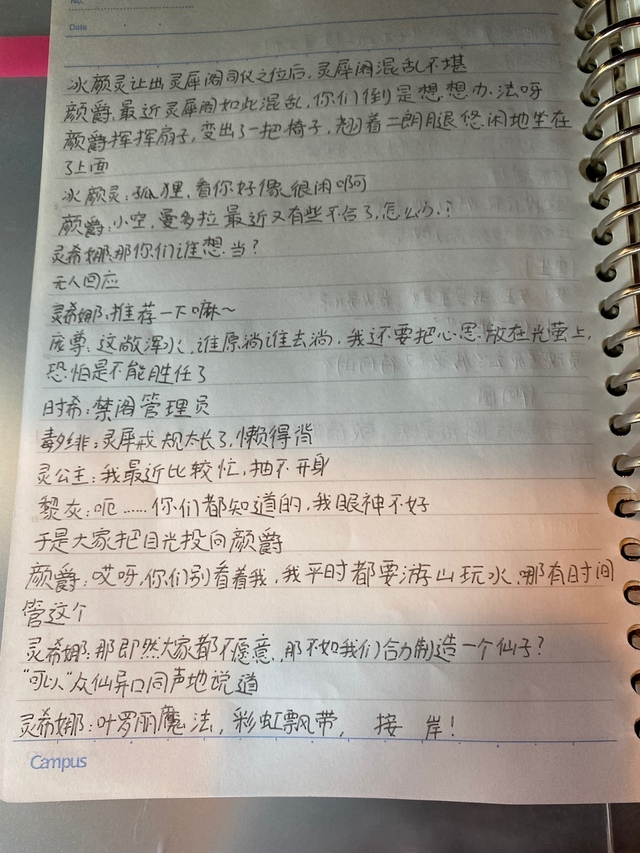 No.
Date
冰颜灵让出灵犀阁司仪之位后,灵犀阁混乱不堪
颜爵:最近灵犀阁如此混乱,你们倒是想想办法呀
颜爵挥挥扇子,变出了一把椅子,翘着二朗腿悠闲地坐在
了上面
冰颜灵:狐狸,看你好像很闲啊
颜爵:小空,曼多拉最近又有些不合了,怎么办?
灵希娜:那你们谁想当?
无人回应
灵希娜:推荐一下嘛~
庞尊:这敞浑水,谁原淌谁去淌,我还要把心思放在光莹上,
恐怕是不能胜任了
时希:禁阁管理员
毒夕绯:灵犀戒规太长了,懒得背
灵公主:我最近比较忙,抽不开身
黎灰:呃……你们都知道的,我眼神不好
于是大家把目光投向颜爵
颜爵:哎呀,你们别看着我,我平时都要游山玩水,哪有时间
管这个
灵希娜:那即然大家都不愿意,那不如我们合力制造一个仙子?
"可以"众仙异口同声地说道
灵希娜:叶罗丽魔法,彩虹飘带, 接 岸!
Campus